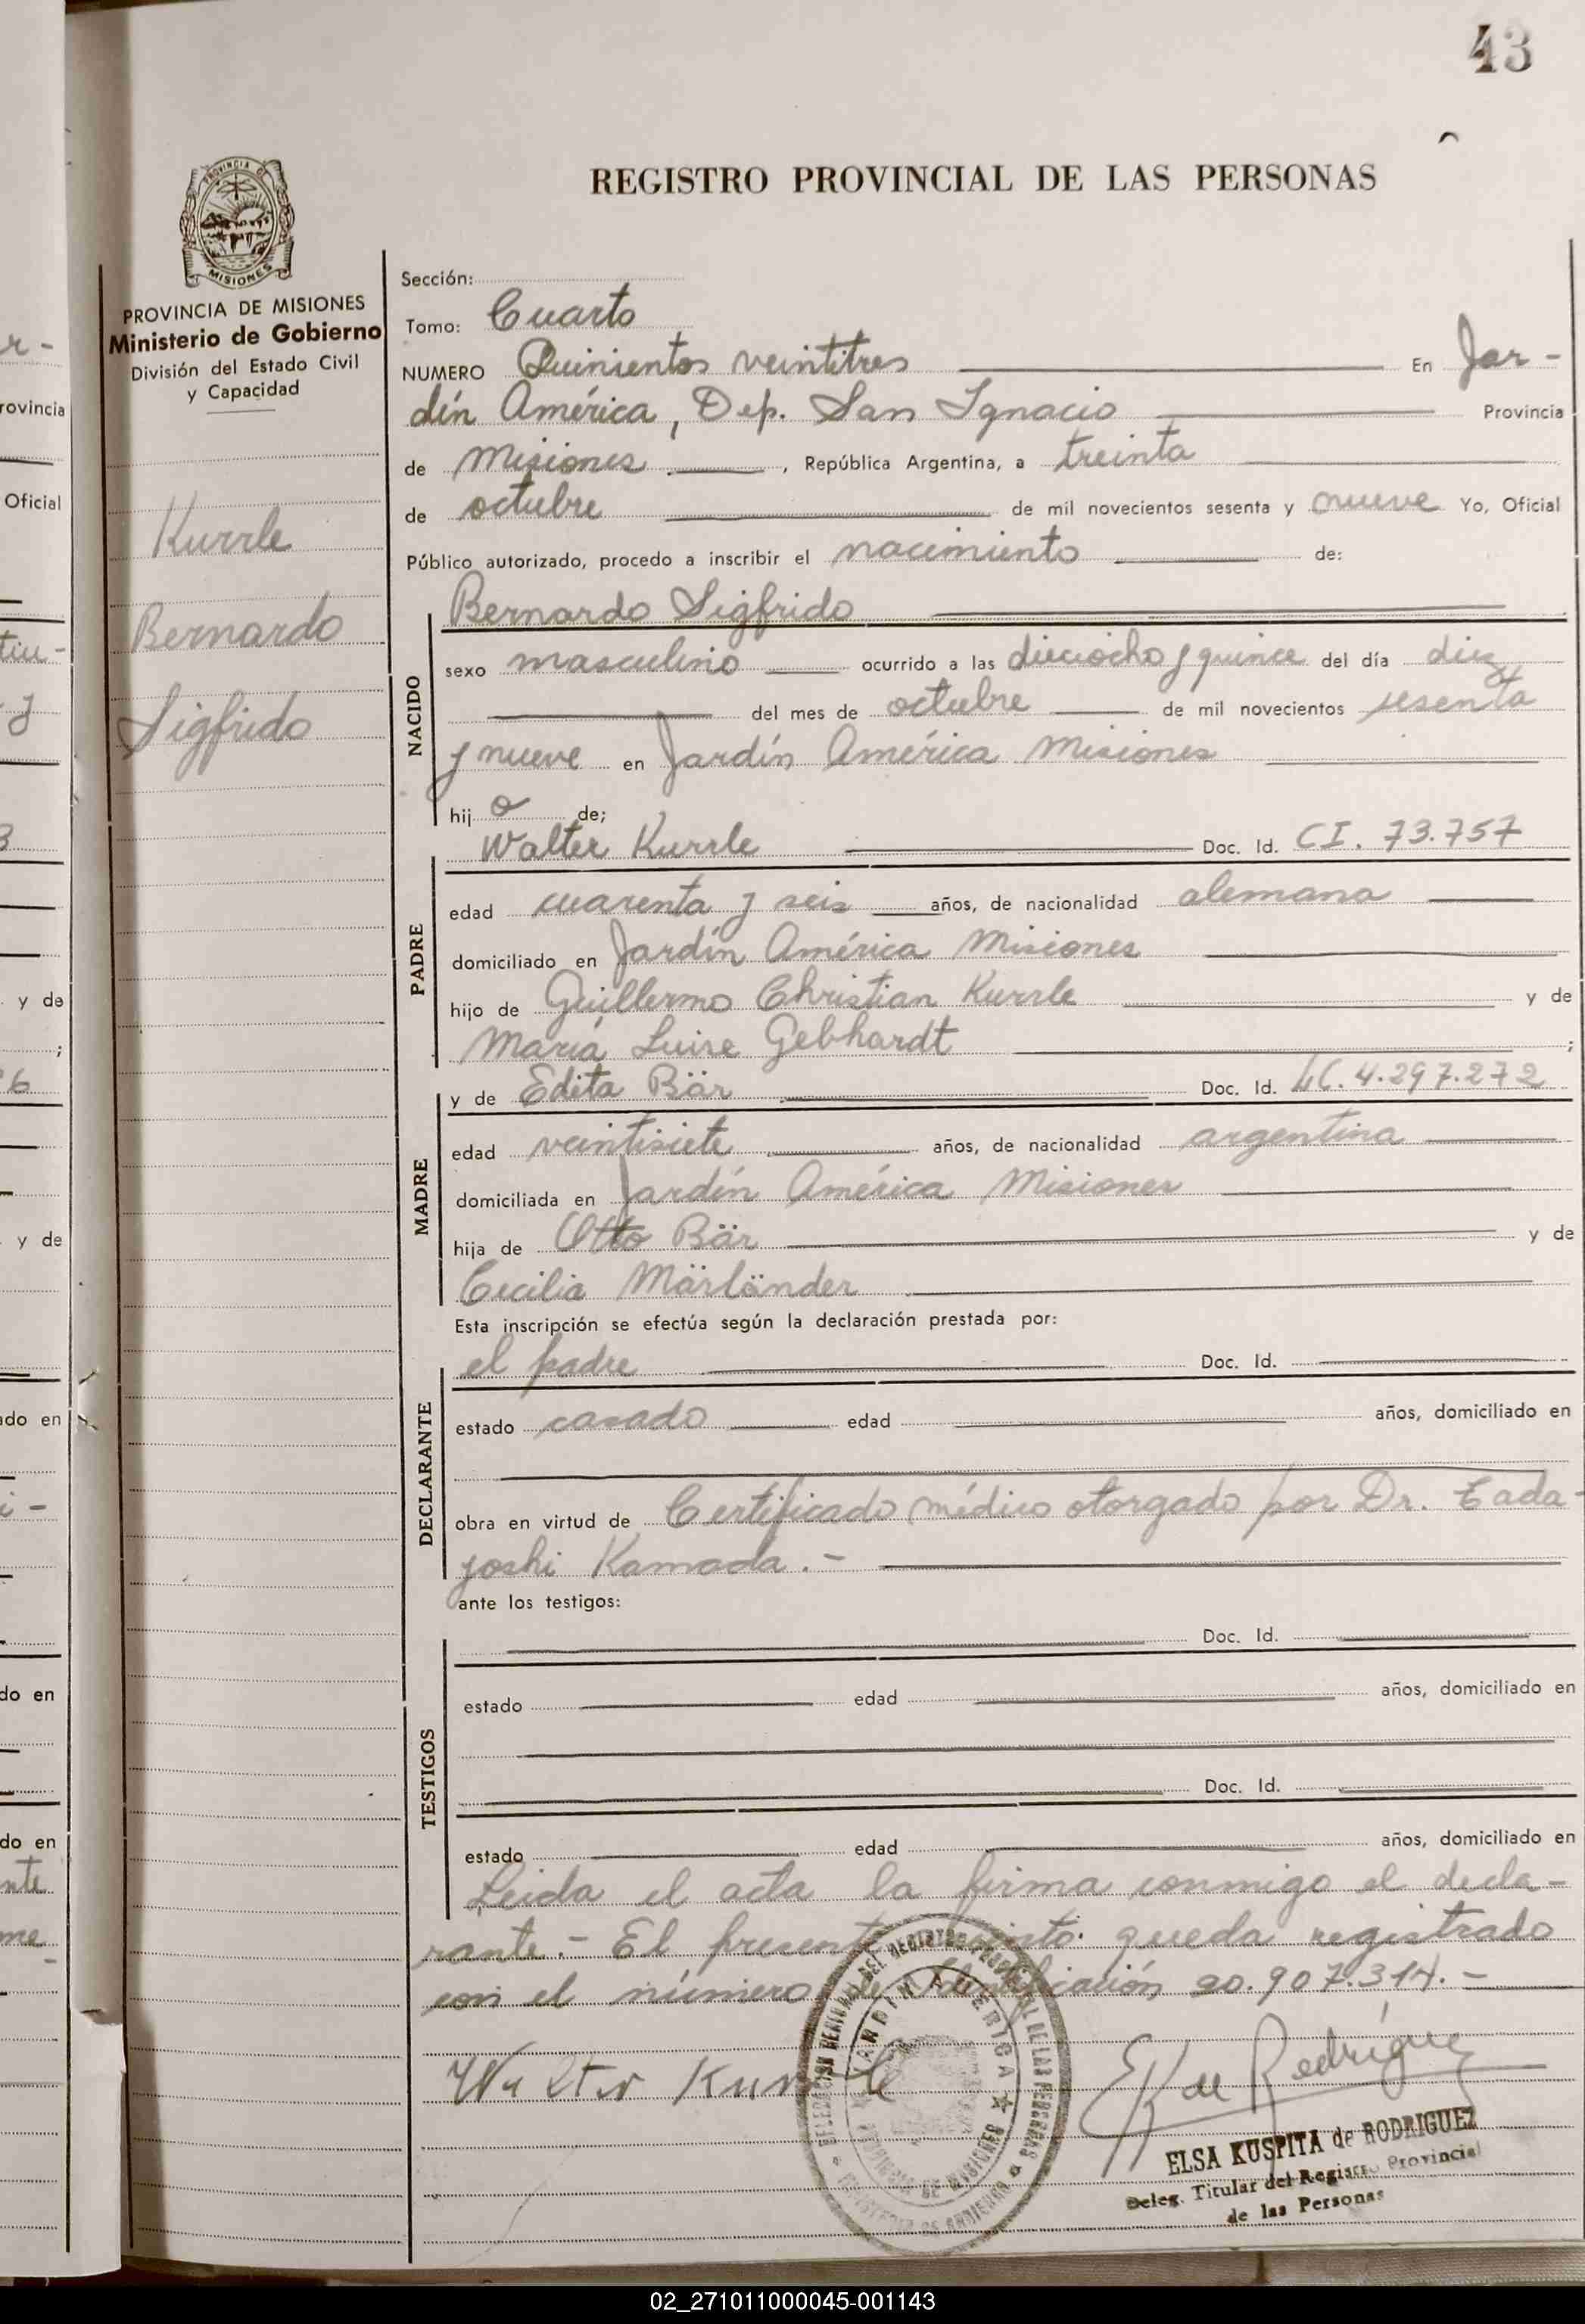 43
REGISTRO PROVINCIAL DE LAS PERSONAS
PROVINCIA DE
MISIONES
PROVINCIA DE MISIONES
Ministerio de Gobierno
División del Estado Civil
y Capacidad
Kurrle
Bernardo
Sigfrido
Sección:
Tomo: Cuarto
NUMERO Quinientos veintitres En Jar-
dín América, Dep. San Ignacio Provincia
de Misiones, República Argentina, a treinta
de octubre de mil novecientos sesenta y nueve Yo, Oficial
Público autorizado, procedo a inscribir el nacimiento de:
NACIDO
Bernardo Sigfrido
sexo masculino ocurrido a las dieciocho y quince del día diez
del mes de octubre de mil novecientos sesenta
y nueve en Jardín América Misiones
hij o de;
PADRE
Walter Kurrle Doc. Id. CI. 73.757
edad cuarenta y seis años, de nacionalidad alemana
domiciliado en Jardín América Misiones
hijo de Guillermo Christian Kurrle y de
María Luise Gebhardt ;
MADRE
y de Edita Bär Doc. Id. LC. 4.297.272
edad veintisiete años, de nacionalidad argentina
domiciliada en Jardín América Misiones
hija de Otto Bär y de
Cecilia Märländer
Esta inscripción se efectúa según la declaración prestada por:
DECLARANTE
el padre Doc. Id.
estado casado edad años, domiciliado en
obra en virtud de Certificado médico otorgado por Dr. Tada-
yoshi Kamada.-
ante los testigos:
TESTIGOS
Doc. Id.
estado edad años, domiciliado en
Doc. Id.
estado edad años, domiciliado en
Leida el acta la firma conmigo el decla-
rante.- El presente queda registrado
con el número de identificación 20.907.314.-
Walter Kurrle
EK de Rodriguez
JARDIN AMERICA
PROVINCIA DE MISIONES
ELSA KUSPITA de RODRIGUEZ
Deleg. Titular del Registro Provincial
de las Personas
rovincia
Oficial
y de
;
y de
do en
do en
do en
02_271011000045-001143